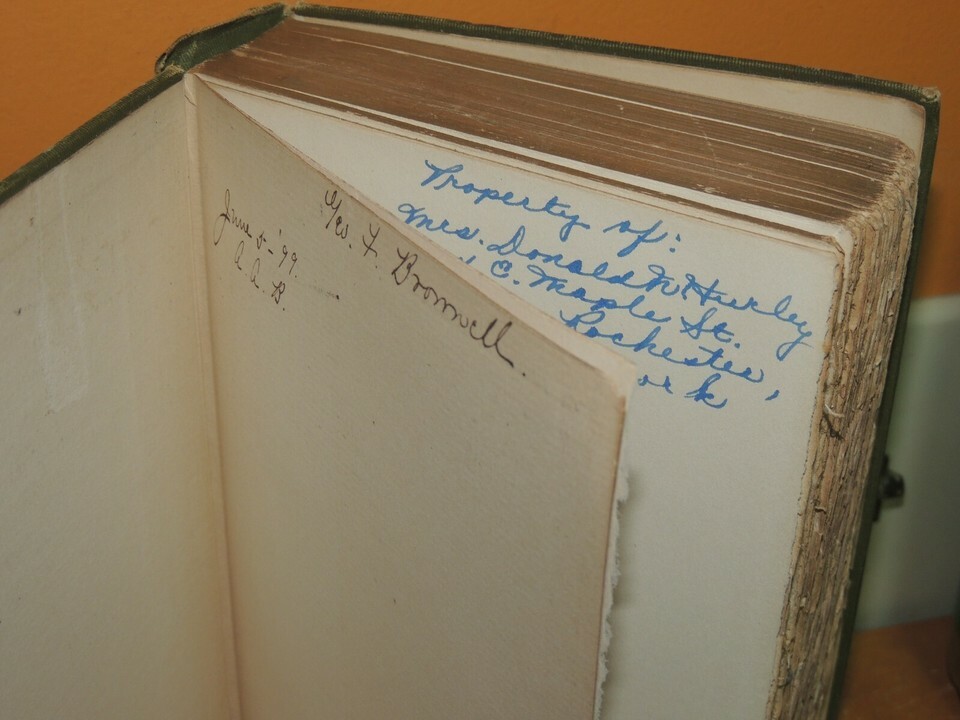 Geo. F. Bromwell
June 5-'99.
A. A. B.
Property of:
Mrs. Donald N Hurley
E. Maple St.
Rochester,
ork